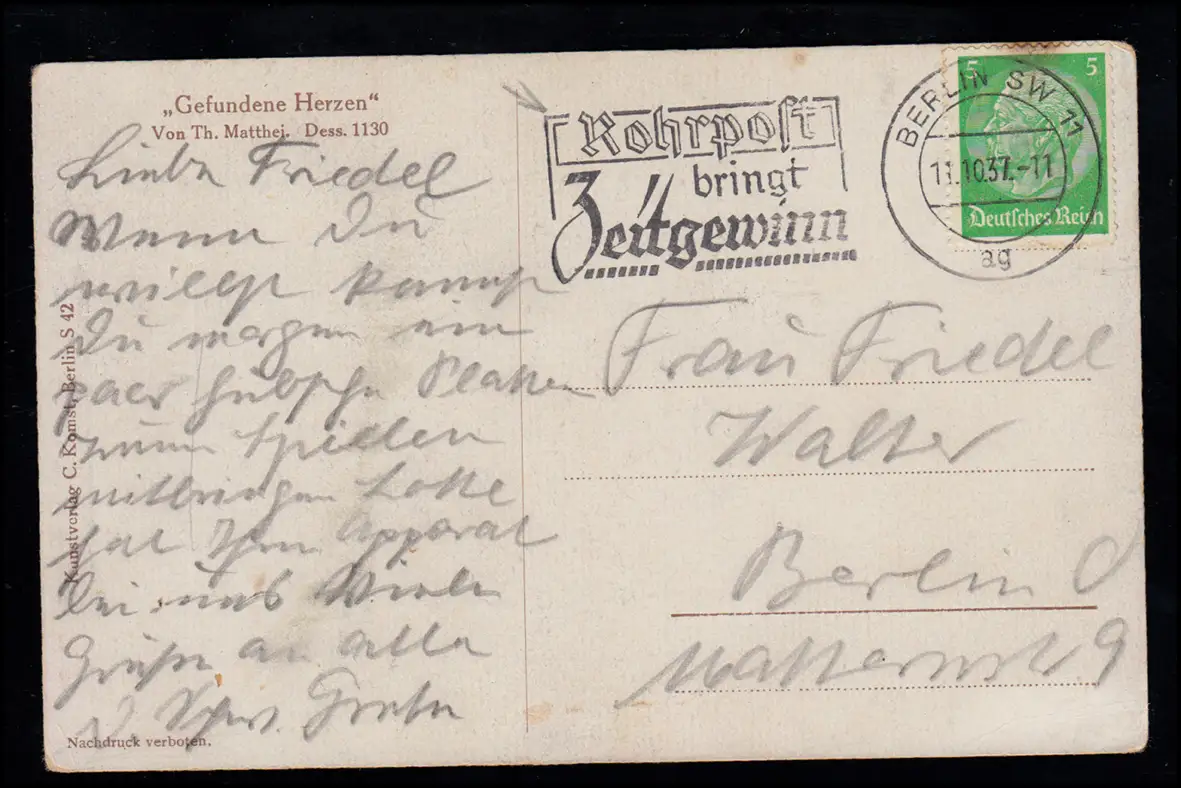 „Gefundene Herzen“
Von Th. Matthei. Dess. 1130
Liebe Friedel
Wenn Du
willst kannst
Du morgen ein
paar hübsche Platten
zum Spielen
mitbringen Lotte
hat Ihren Apparat
bei uns Viele
Grüße an alle
Grete
Kunstverlag C. Komst, Berlin S 42
Nachdruck verboten.
Rohrpost
bringt
Zeitgewinn
BERLIN SW 11
11.10.37.-11
ag
5 5
Deutsches Reich
Frau Friedel
Walter
Berlin O
Matternstr 9